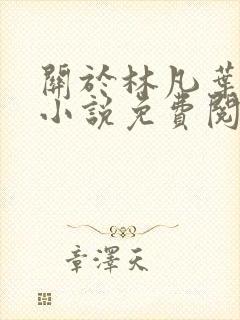 關於林凡葉
小說免費閱
章澤天